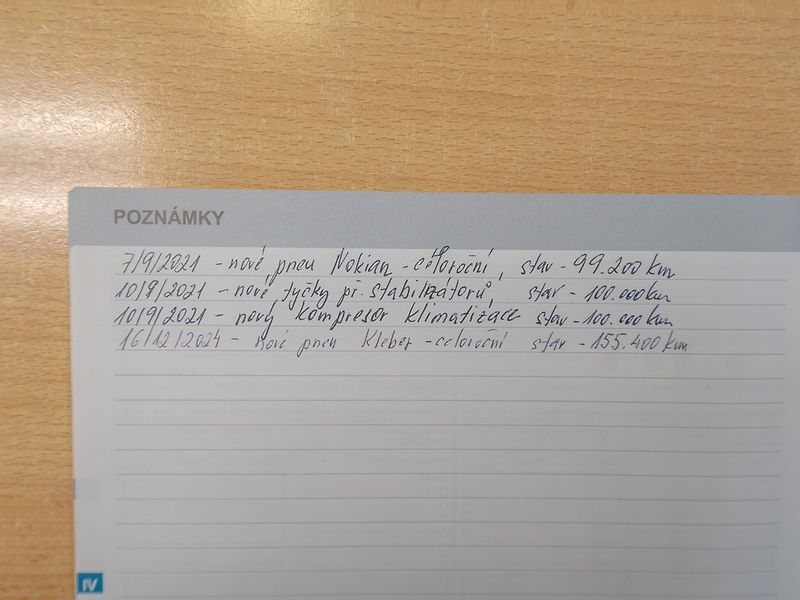 POZNÁMKY
7/9/2021 - nové pneu Nokian - celoroční, stav - 99.200 km
10/9/2021 - nové tyčky př. stabilizátorů, stav - 100.000 km
10/9/2021 - nový kompresor klimatizace stav - 100.000 km
16/12/2024 - nové pneu Kleber - celoroční stav - 155.400 km
IV